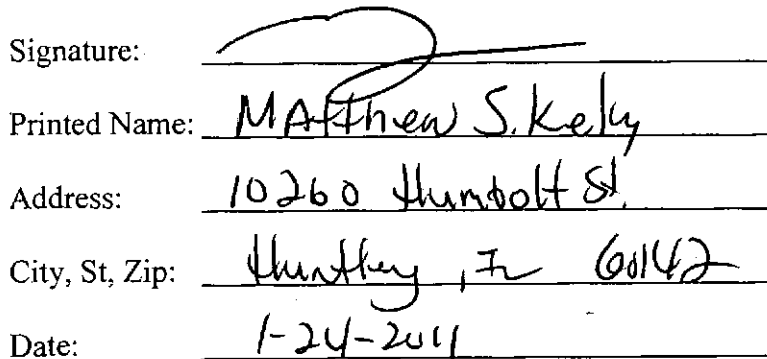 Signature:
Printed Name: Matthew S. Kelly
Address: 10260 Humbolt St.
City, St, Zip: Huntley, IL 60142
Date: 1-24-2011